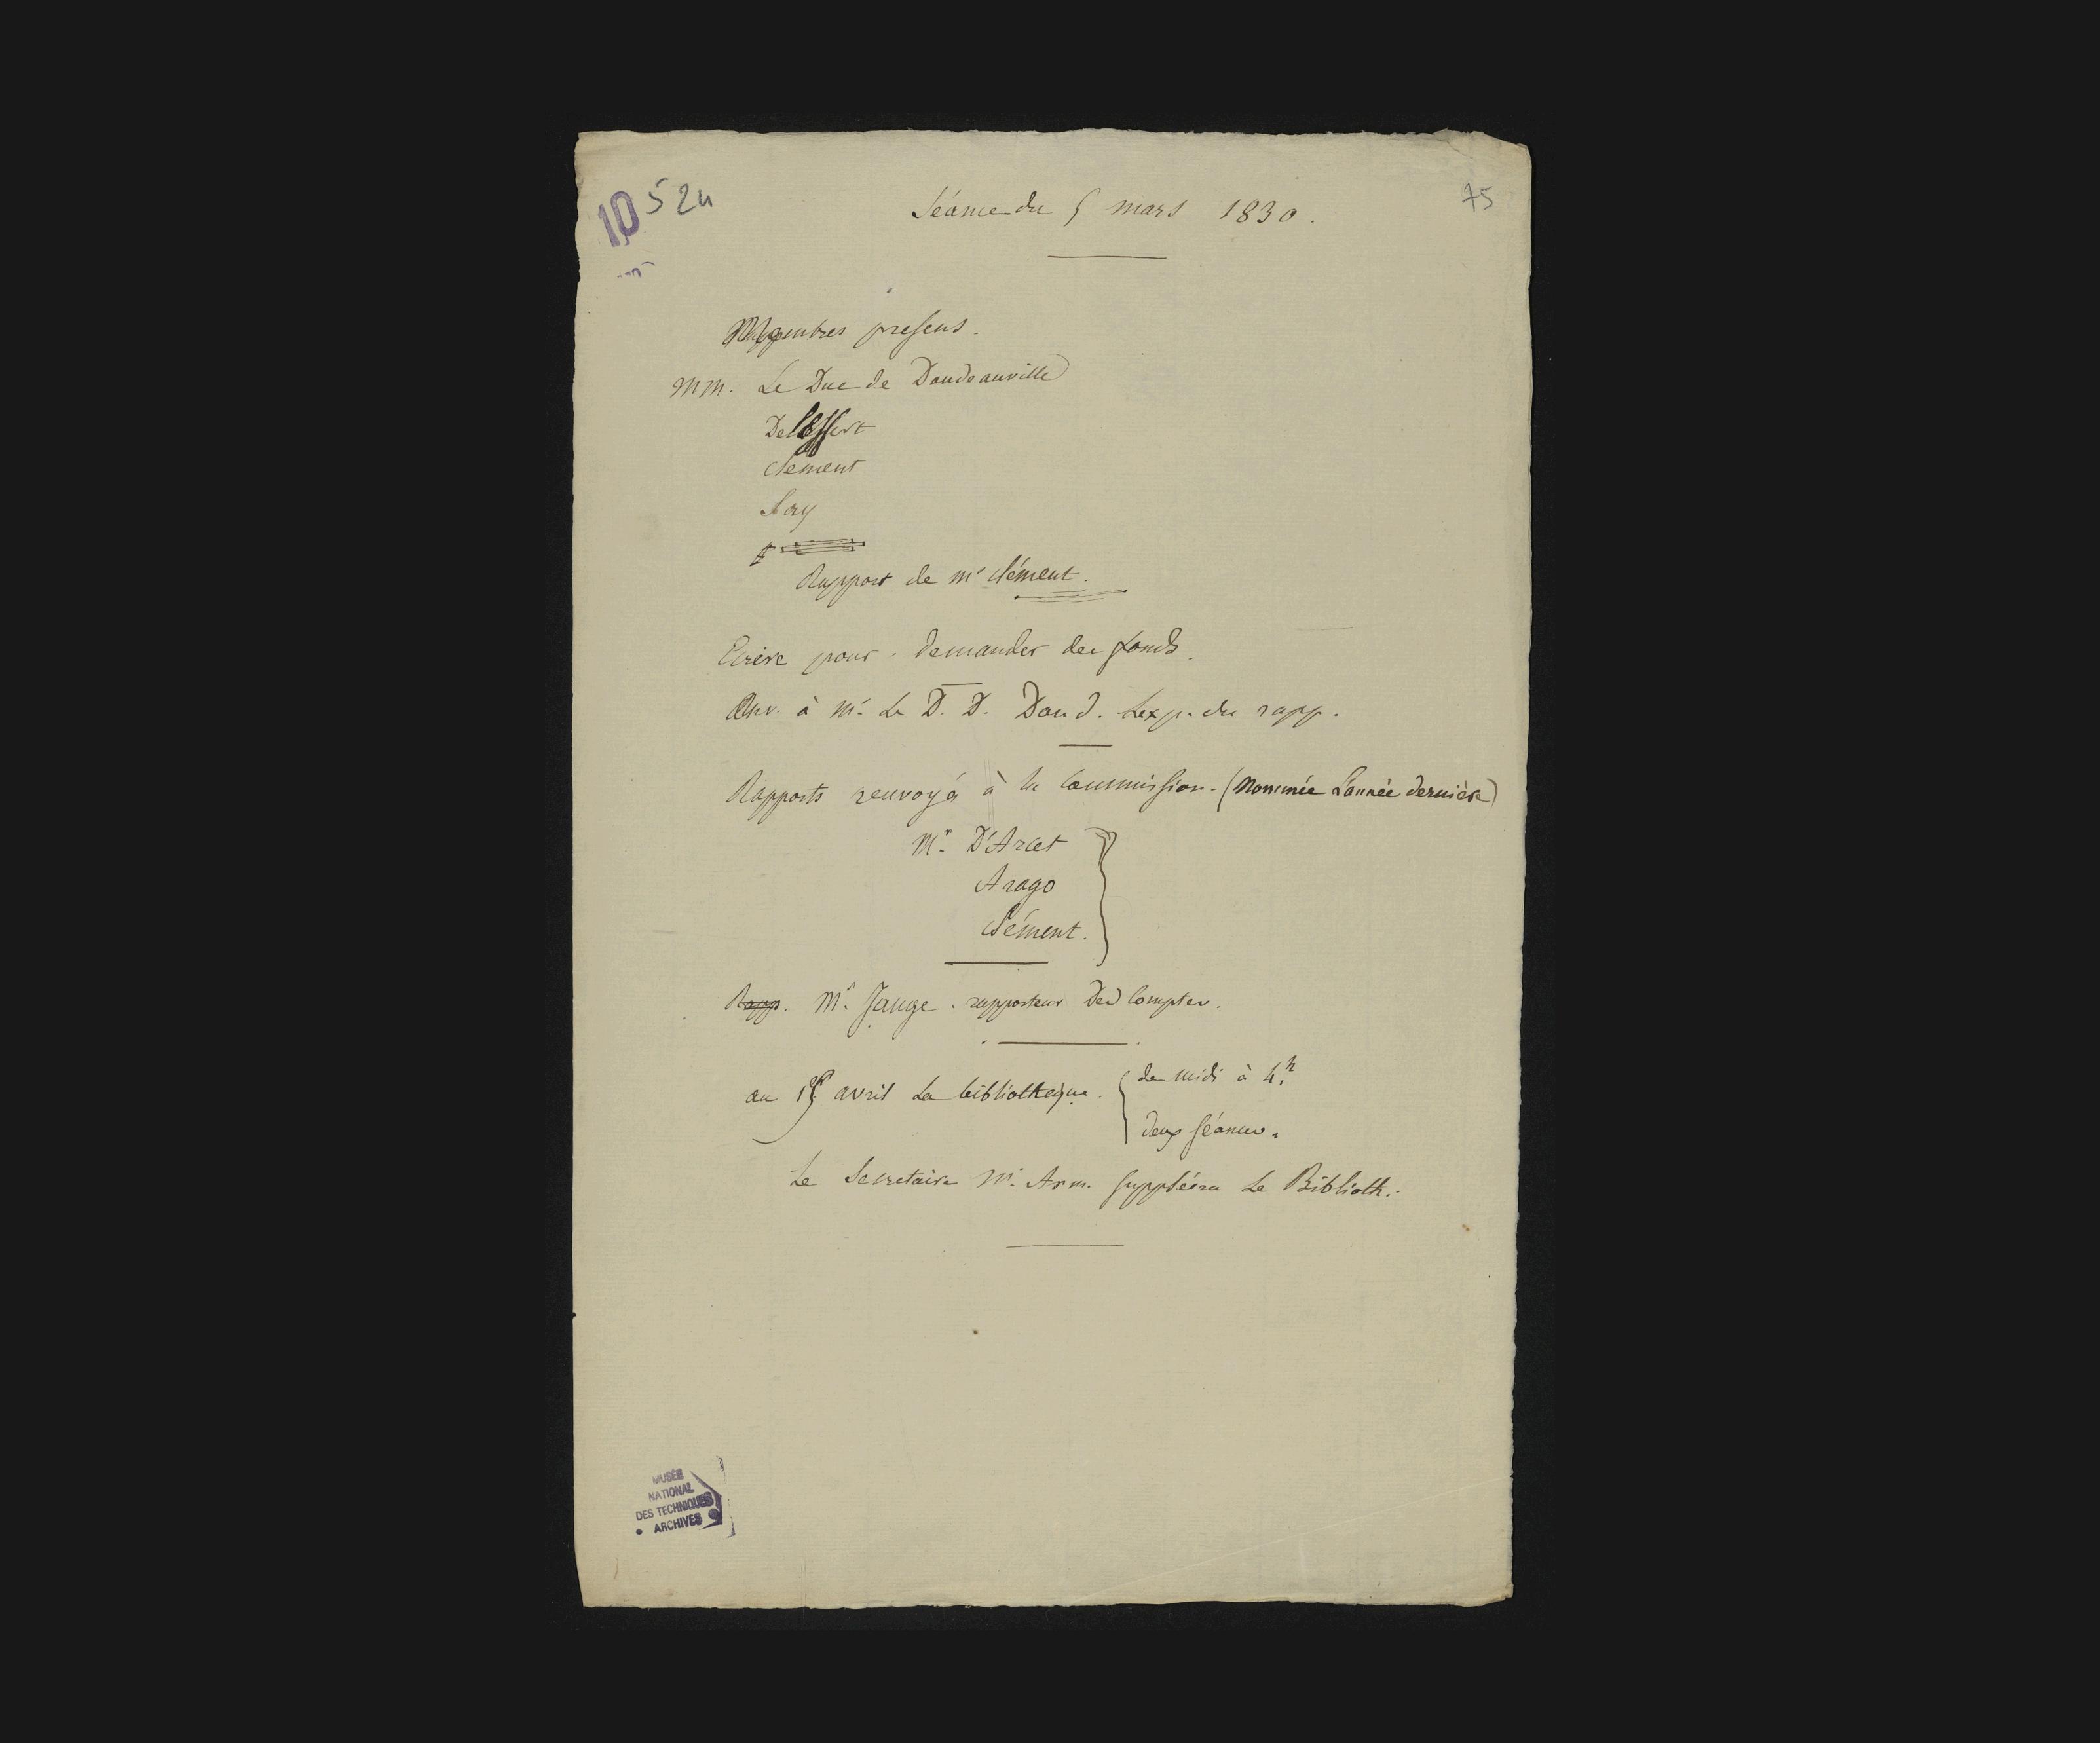 10 524
75
Séance du 5 mars 1830.
Membres presens.
MM. Le Duc de Doudeauville
Delessert
Clement
Say
Rapport de Mr Clément.
Ecrire pour demander des fonds.
Env. à Mr. Le D. D. Doud. L'exp. du rapp.
Rapports renvoyés à la Commission. (Nommée L'année dernière)
Mr. D'Arcet
Arago
Clément.
Rapp. Mr. Jauge. rapporteur Des Comptes.
au 15 avril La bibliotheque. de midi à 4h.
deux séances.
Le Secretaire Mr. Arm. suppléera Le Biblioth.
MUSÉE
NATIONAL
DES TECHNIQUES
• ARCHIVES •